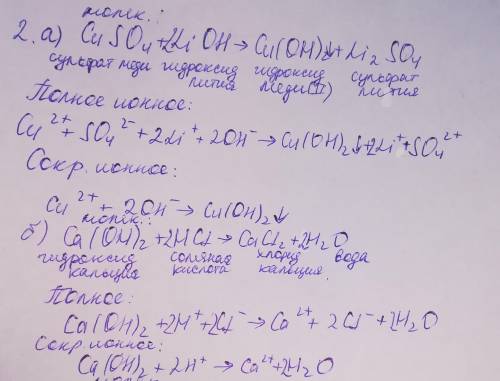 молек.:
2. а) CuSO₄+2LiOH→Cu(OH)₂↓+Li₂SO₄
сульфат меди гидроксид гидроксид сульфат
лития меди(II) лития
Полное ионное:
Cu²⁺+SO₄²⁻+2Li⁺+2OH⁻→Cu(OH)₂↓+2Li⁺+SO₄²⁺
Сокр. ионное:
Cu²⁺+2OH⁻→Cu(OH)₂↓
молек.:
б) Ca(OH)₂+2HCl→CaCl₂+2H₂O
гидроксид соляная хлорид вода
кальция кислота кальция
Полное:
Ca(OH)₂+2H⁺+2Cl⁻→Ca²⁺+2Cl⁻+2H₂O
Сокр. ионное:
Ca(OH)₂+2H⁺→Ca²⁺+2H₂O